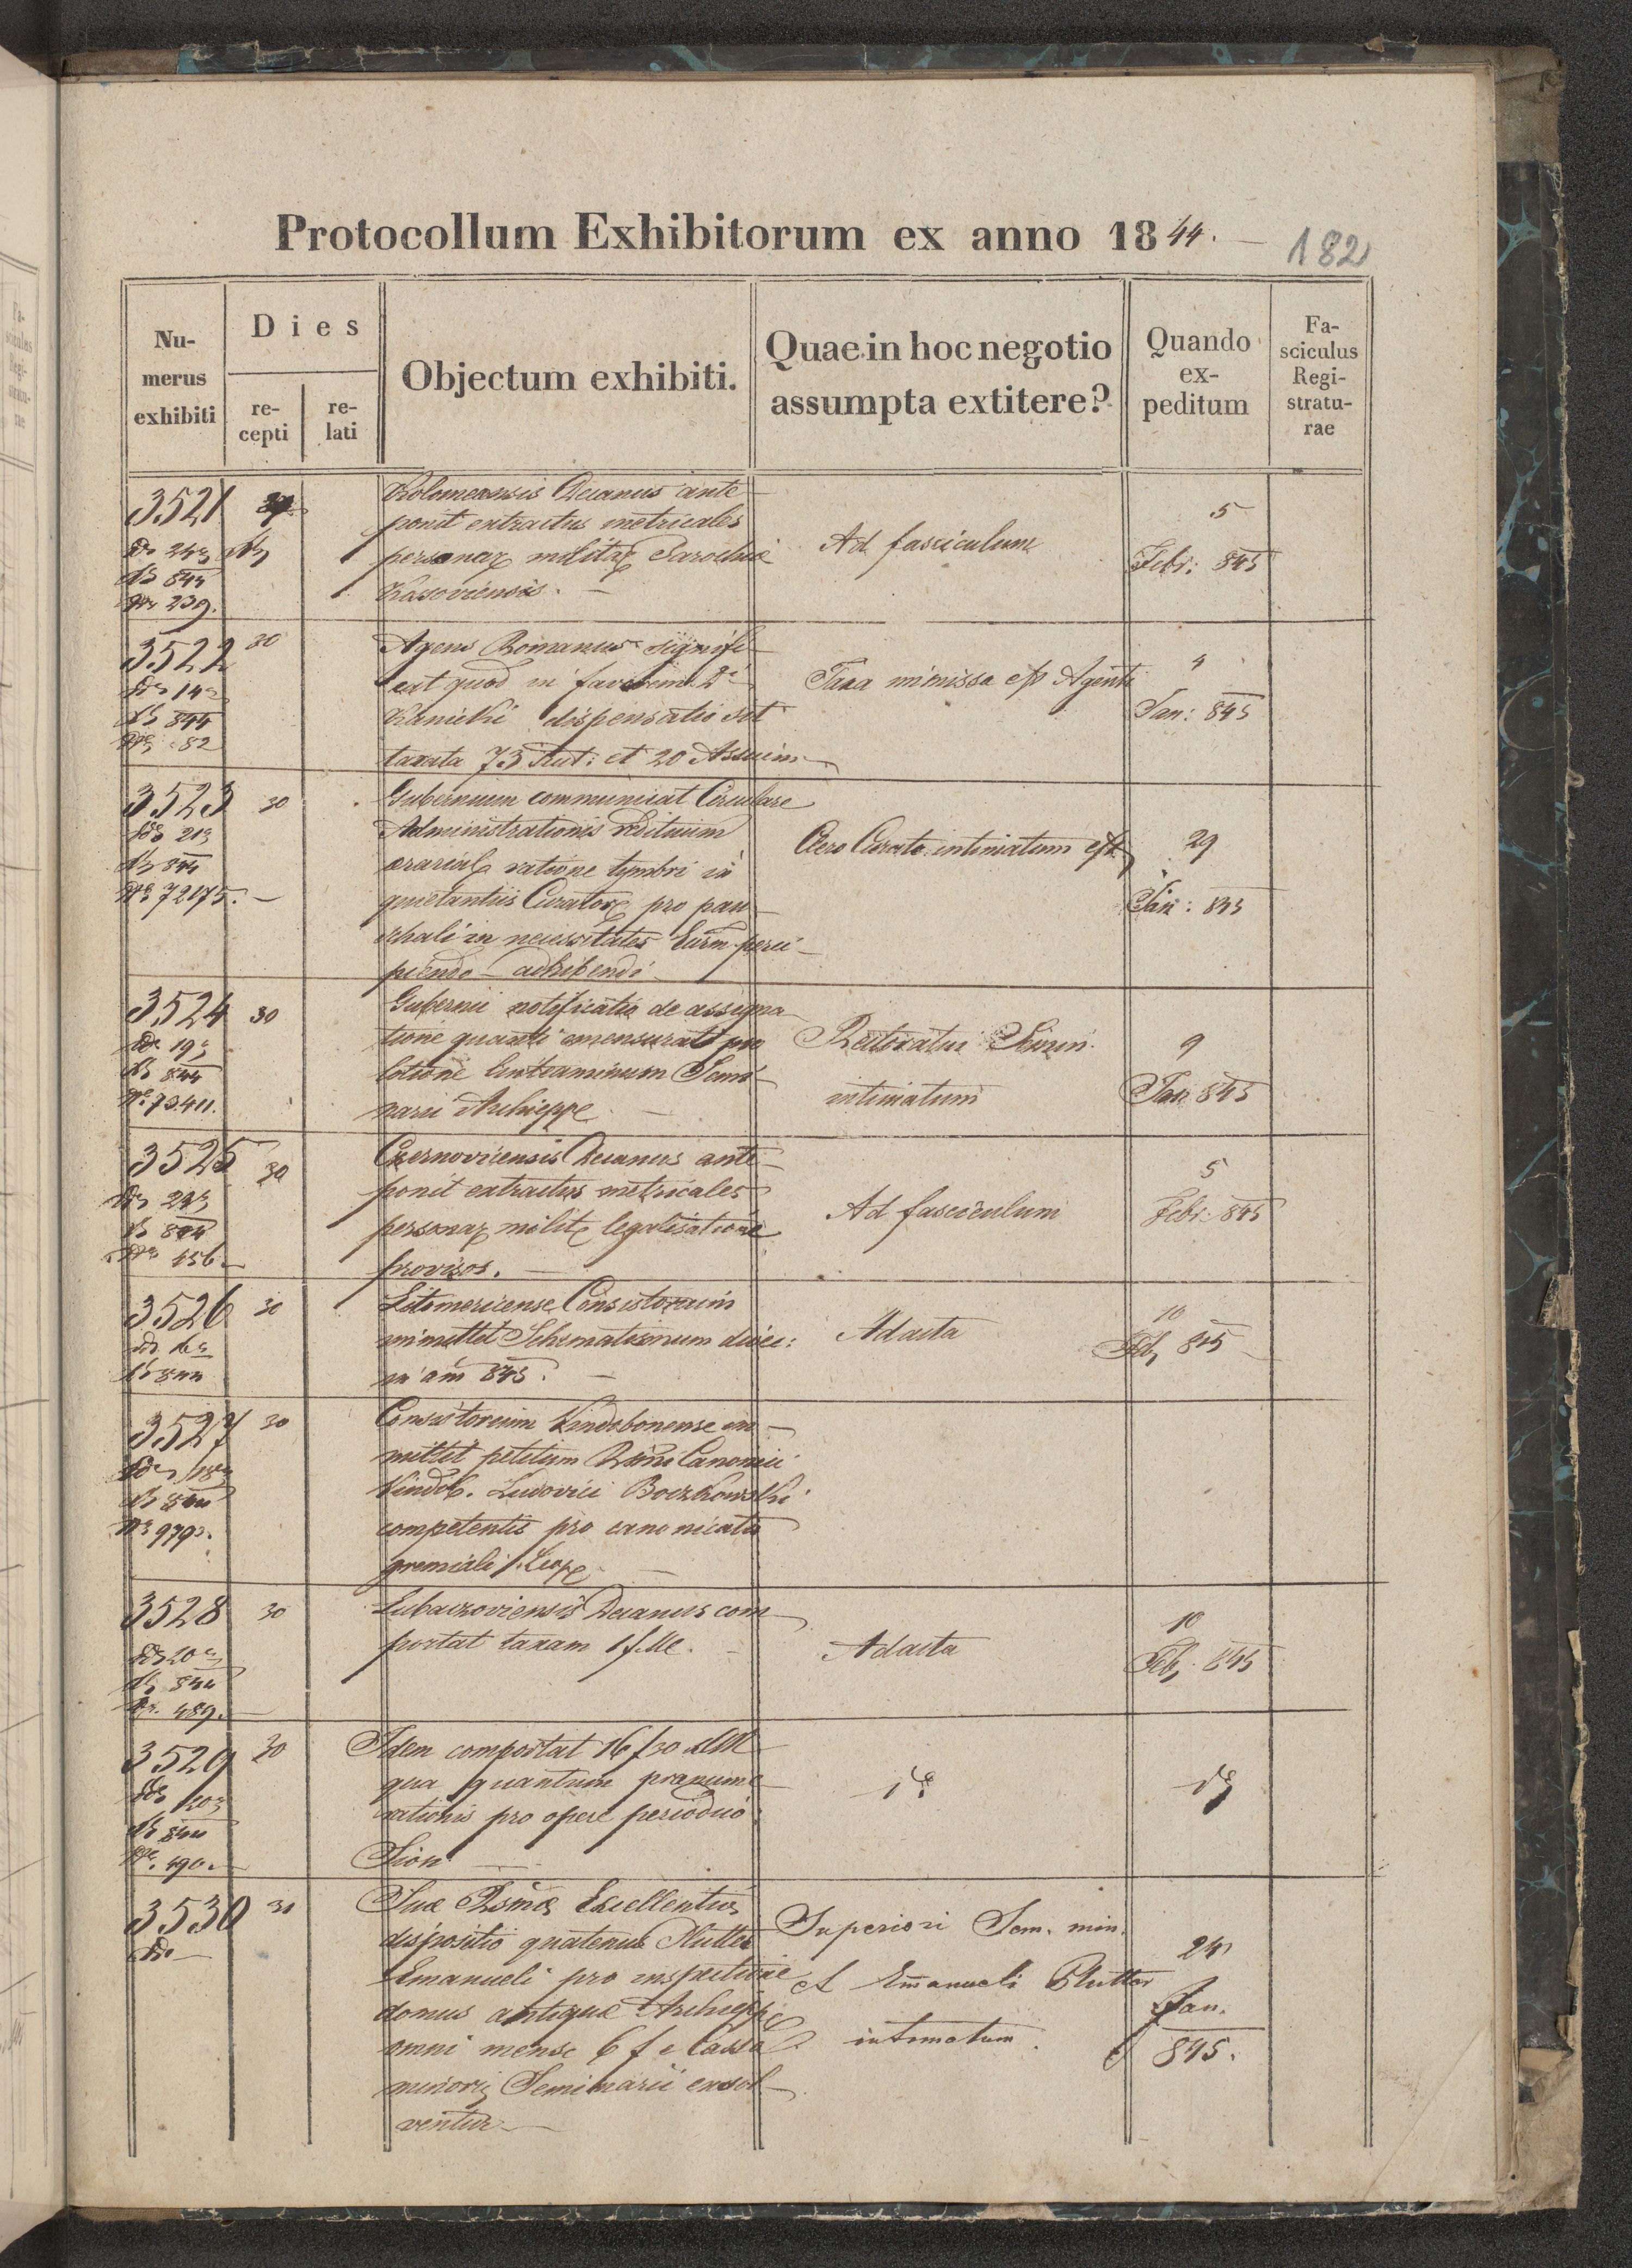 Protocollum Exhibitorum ex anno 1844.
182
Numerus exhibiti
Dies
recepti
relati
Objectum exhibiti.
Quae in hoc negotio assumpta extitere?
Quando expeditum
Fasciculus Registraturae
3521
Kolomeaensis Decanus ante
ponit extractus metricales
personar militar Parochiae
Kasoviensis.
Ad fasciculum
5
Febr: 845
844
239.
3522 30
Agens Romanus signifi
cat quod in favorem
Kanicki dispensatio sit
taxata 73 Scut: et 20
Taxa immissa est Agenti
4
Jan: 845
844
82
3523 30
Gubernium communicat Circulare
Administrationis redituum
aerarial ratione tymbri in
quietantiis Curator pro pau
schali in necessitates perci
piendo adhibendi
Clero Curato intimatum est
29
Jan: 845
844
72175.
3524 30
Gubernii notificatio de assigna
tione quanti emensurati pro
lotione linteaminum Semi
narii Archieppe
Rectoratui Semin.
intimatum
9
Jan 845
844
73411.
3525 30
Czernoviciensis Decanus ante
ponit extractus metricales
personar milit legalisatione
provisos.
Ad fasciculum
5
Febr: 845
844
456
3526 30
Litomericense Consistorium
immittit Schematismum dioec:
845.
Ad acta
10
Feb 845
3527 30
Consistorium Vindobonense im
mittit petitum Canonici
Vindob. Ludovici Boczkowski
competentis pro canonicatu
gremiali
3528 30
Decanus com
portat taxam 1 f.
Ad acta
10
Feb. 845
844
489.
3529 30
Idem comportat 16 f 30
qua quantum praenume
rationis pro opere periodico
Sion
844
490.
3530 30
Suae Excellentiae
dispositio quatenus Plutter
Emanueli pro inspectione
domus antiquae Archiepp
omni mense 6 f e Cassa
minoris Seminarii exsol
ventur
Superiori Sem. min.
et Emanueli Plutter
intimatum.
24
Jan.
845.